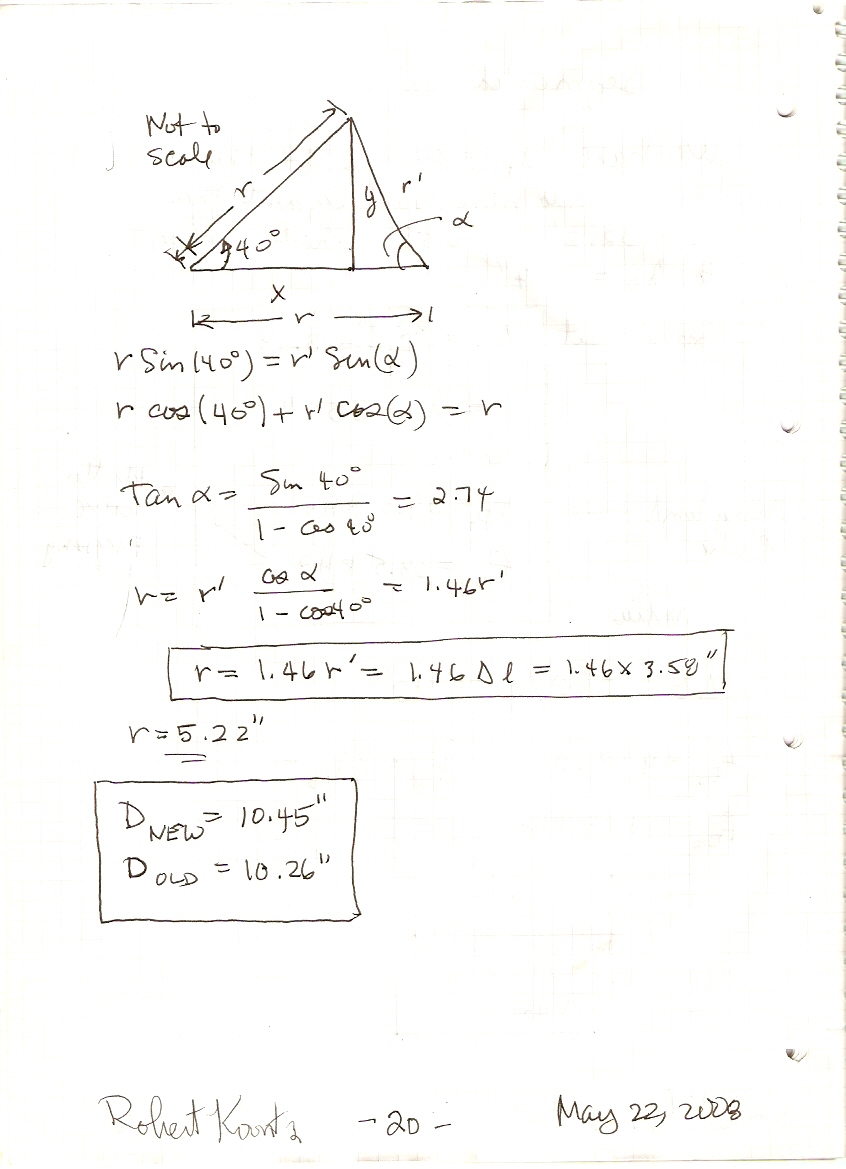 Not to
scale
r
y
r'
α
40°
x
r
r Sin(40°) = r' Sin(α)
r cos(40°) + r' cos(α) = r
Tan α = Sin 40° / 1 - cos 40° = 2.74
r = r' cos α / 1 - cos 40° = 1.46 r'
r = 1.46 r' = 1.46 Δl = 1.46 x 3.58"
r = 5.22"
D NEW = 10.45"
D OLD = 10.26"
Robert -20- May 22, 2008